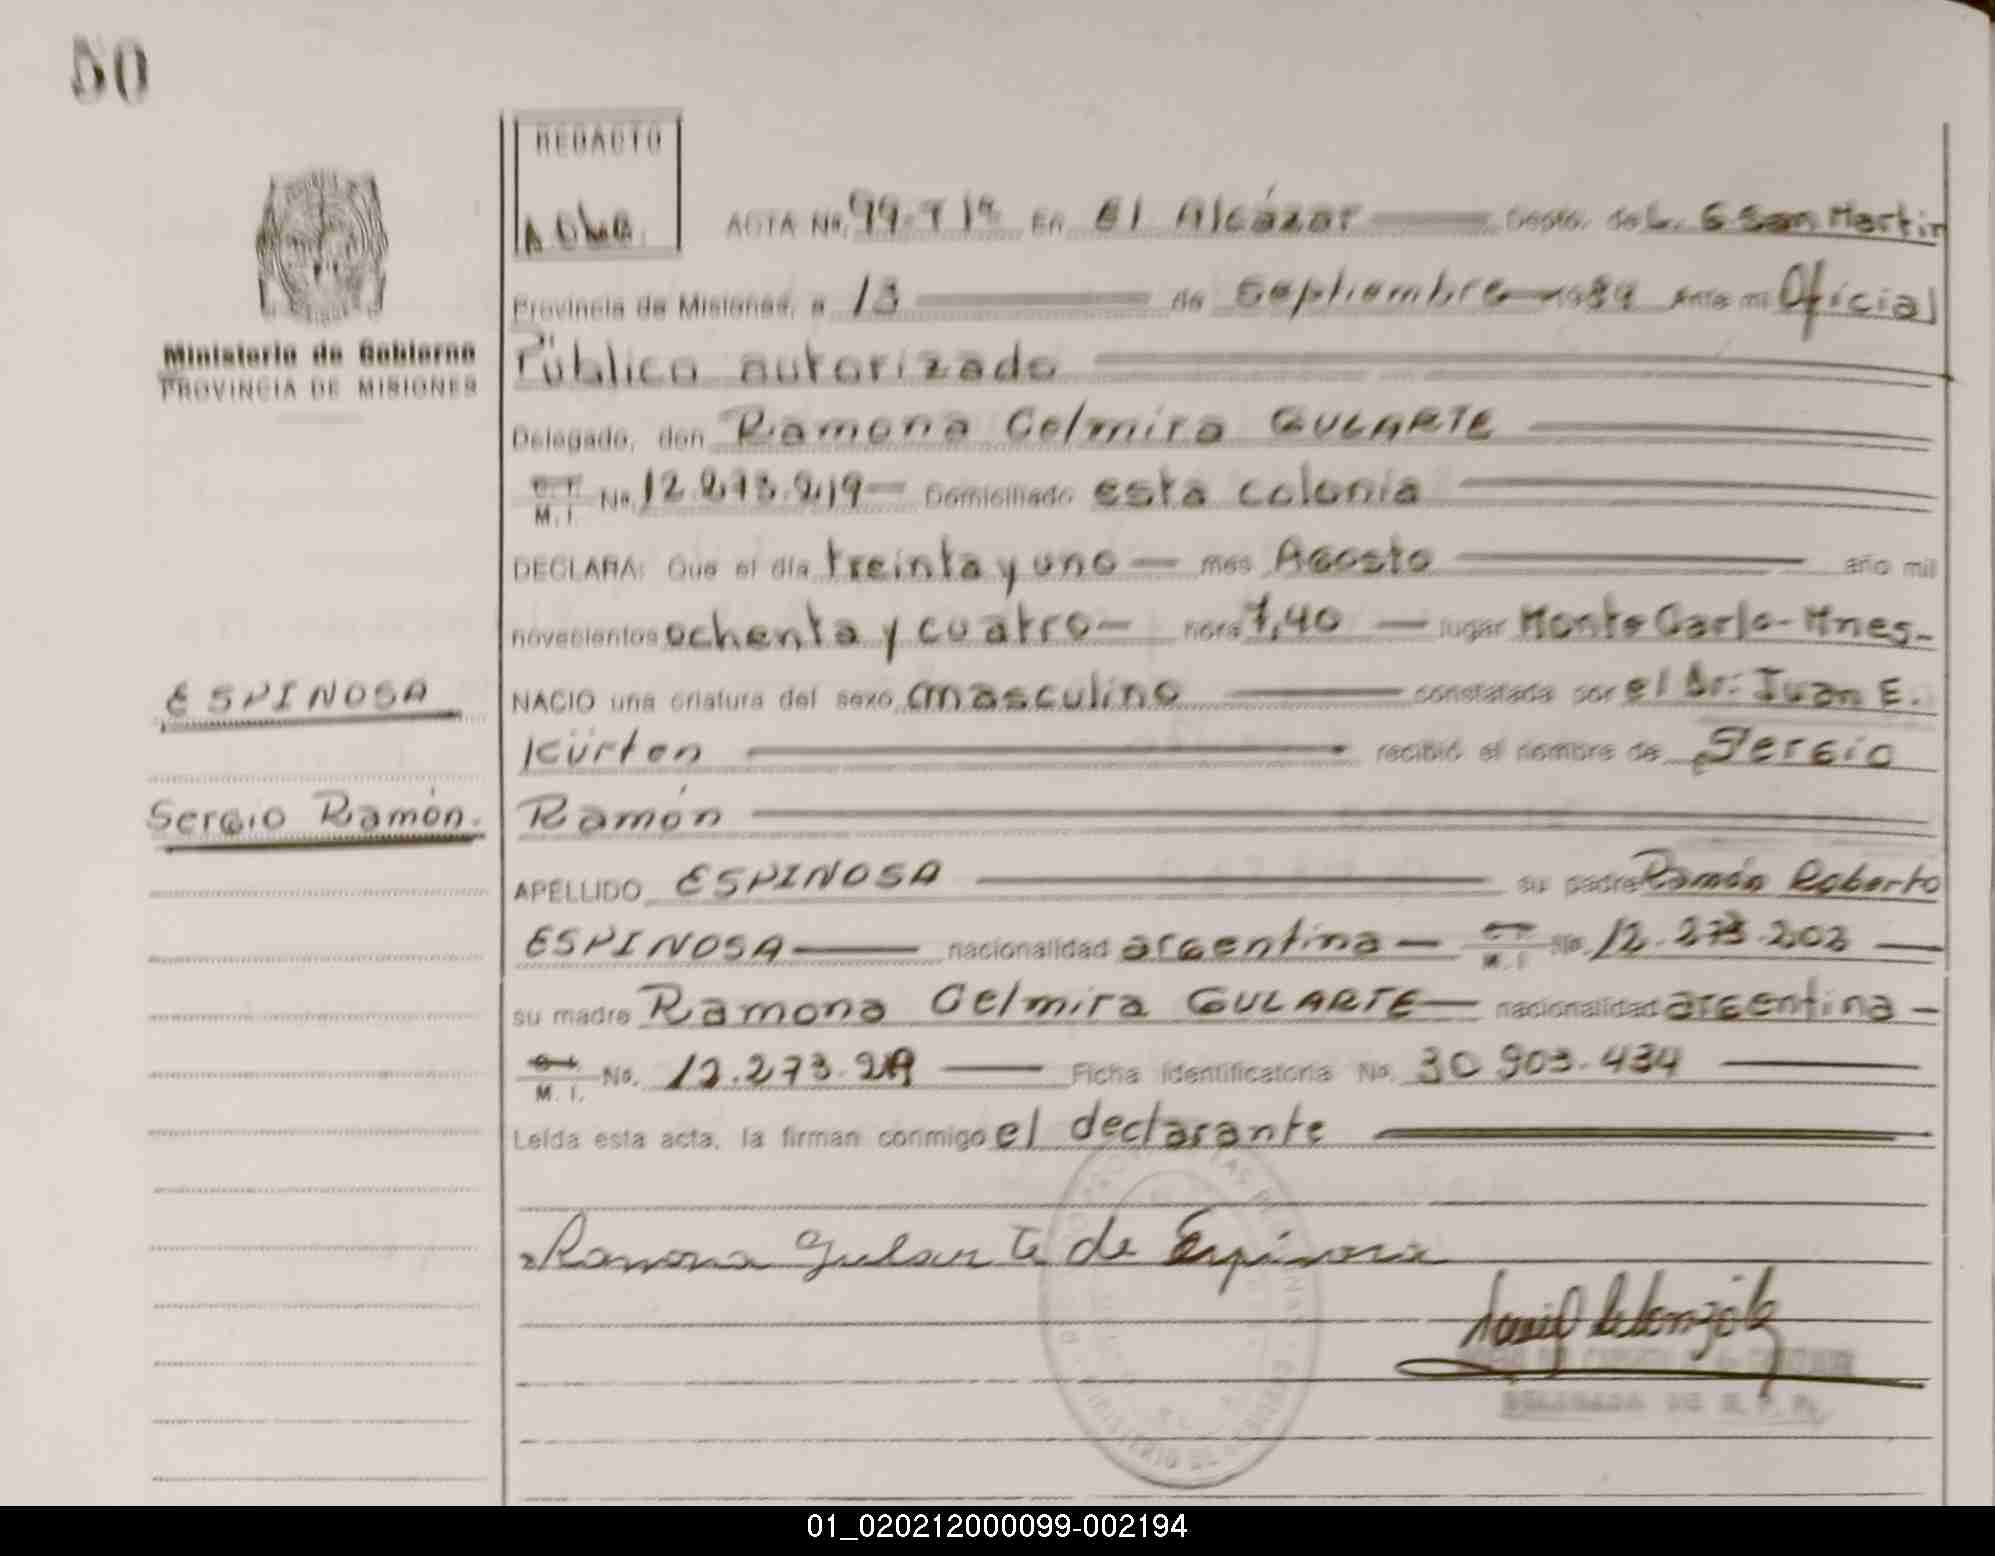 50
REDACTO
ACTA No. 99-T 1º En El Alcázar Depto. de L. G San Martin
Provincia de Misiones, a 13 de Septiembre 1984 Ante mi Oficial
Ministerio de Gobierno
PROVINCIA DE MISIONES
Público autorizado
Delegado, don Ramona Celmira GULARTE
C. I. M. I. No. 12.273.219 Domiciliado esta colonia
DECLARA: Que el día treinta y uno mes Agosto año mil
novecientos ochenta y cuatro hora 7,40 lugar Monte Carlo - Mnes-
ESPINOSA
NACIO una criatura del sexo masculino constatada por el Dr: Juan E.
Kürten recibió el nombre de Sergio
Sergio Ramón.
Ramón
APELLIDO ESPINOSA su padre Ramón Roberto
ESPINOSA nacionalidad argentina C. I. M. I No. 12.273.202
su madre Ramona Celmira GULARTE nacionalidad argentina
C. I. M. I. No. 12.273.219 Ficha identificatoria No. 30 903.434
Leída esta acta, la firman conmigo el declarante
Ramona Gularte de Espinosa
DELEGADA DE R. P. P.
01_020212000099-002194